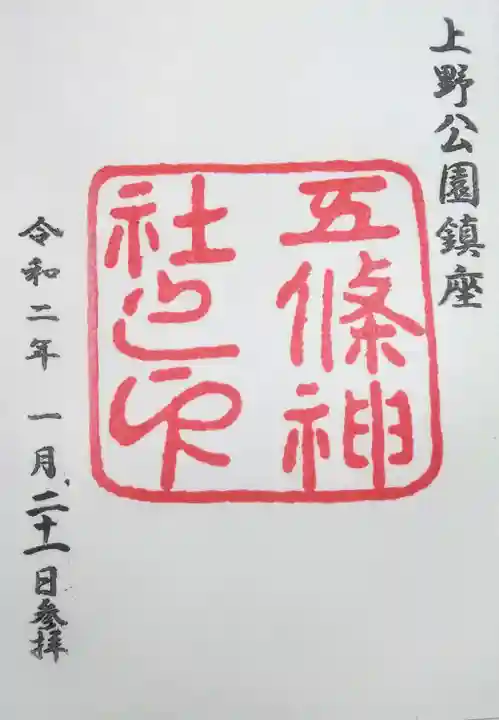 上野公園鎮座
五條神
社之印
令和二年 一月、二十一日参拝